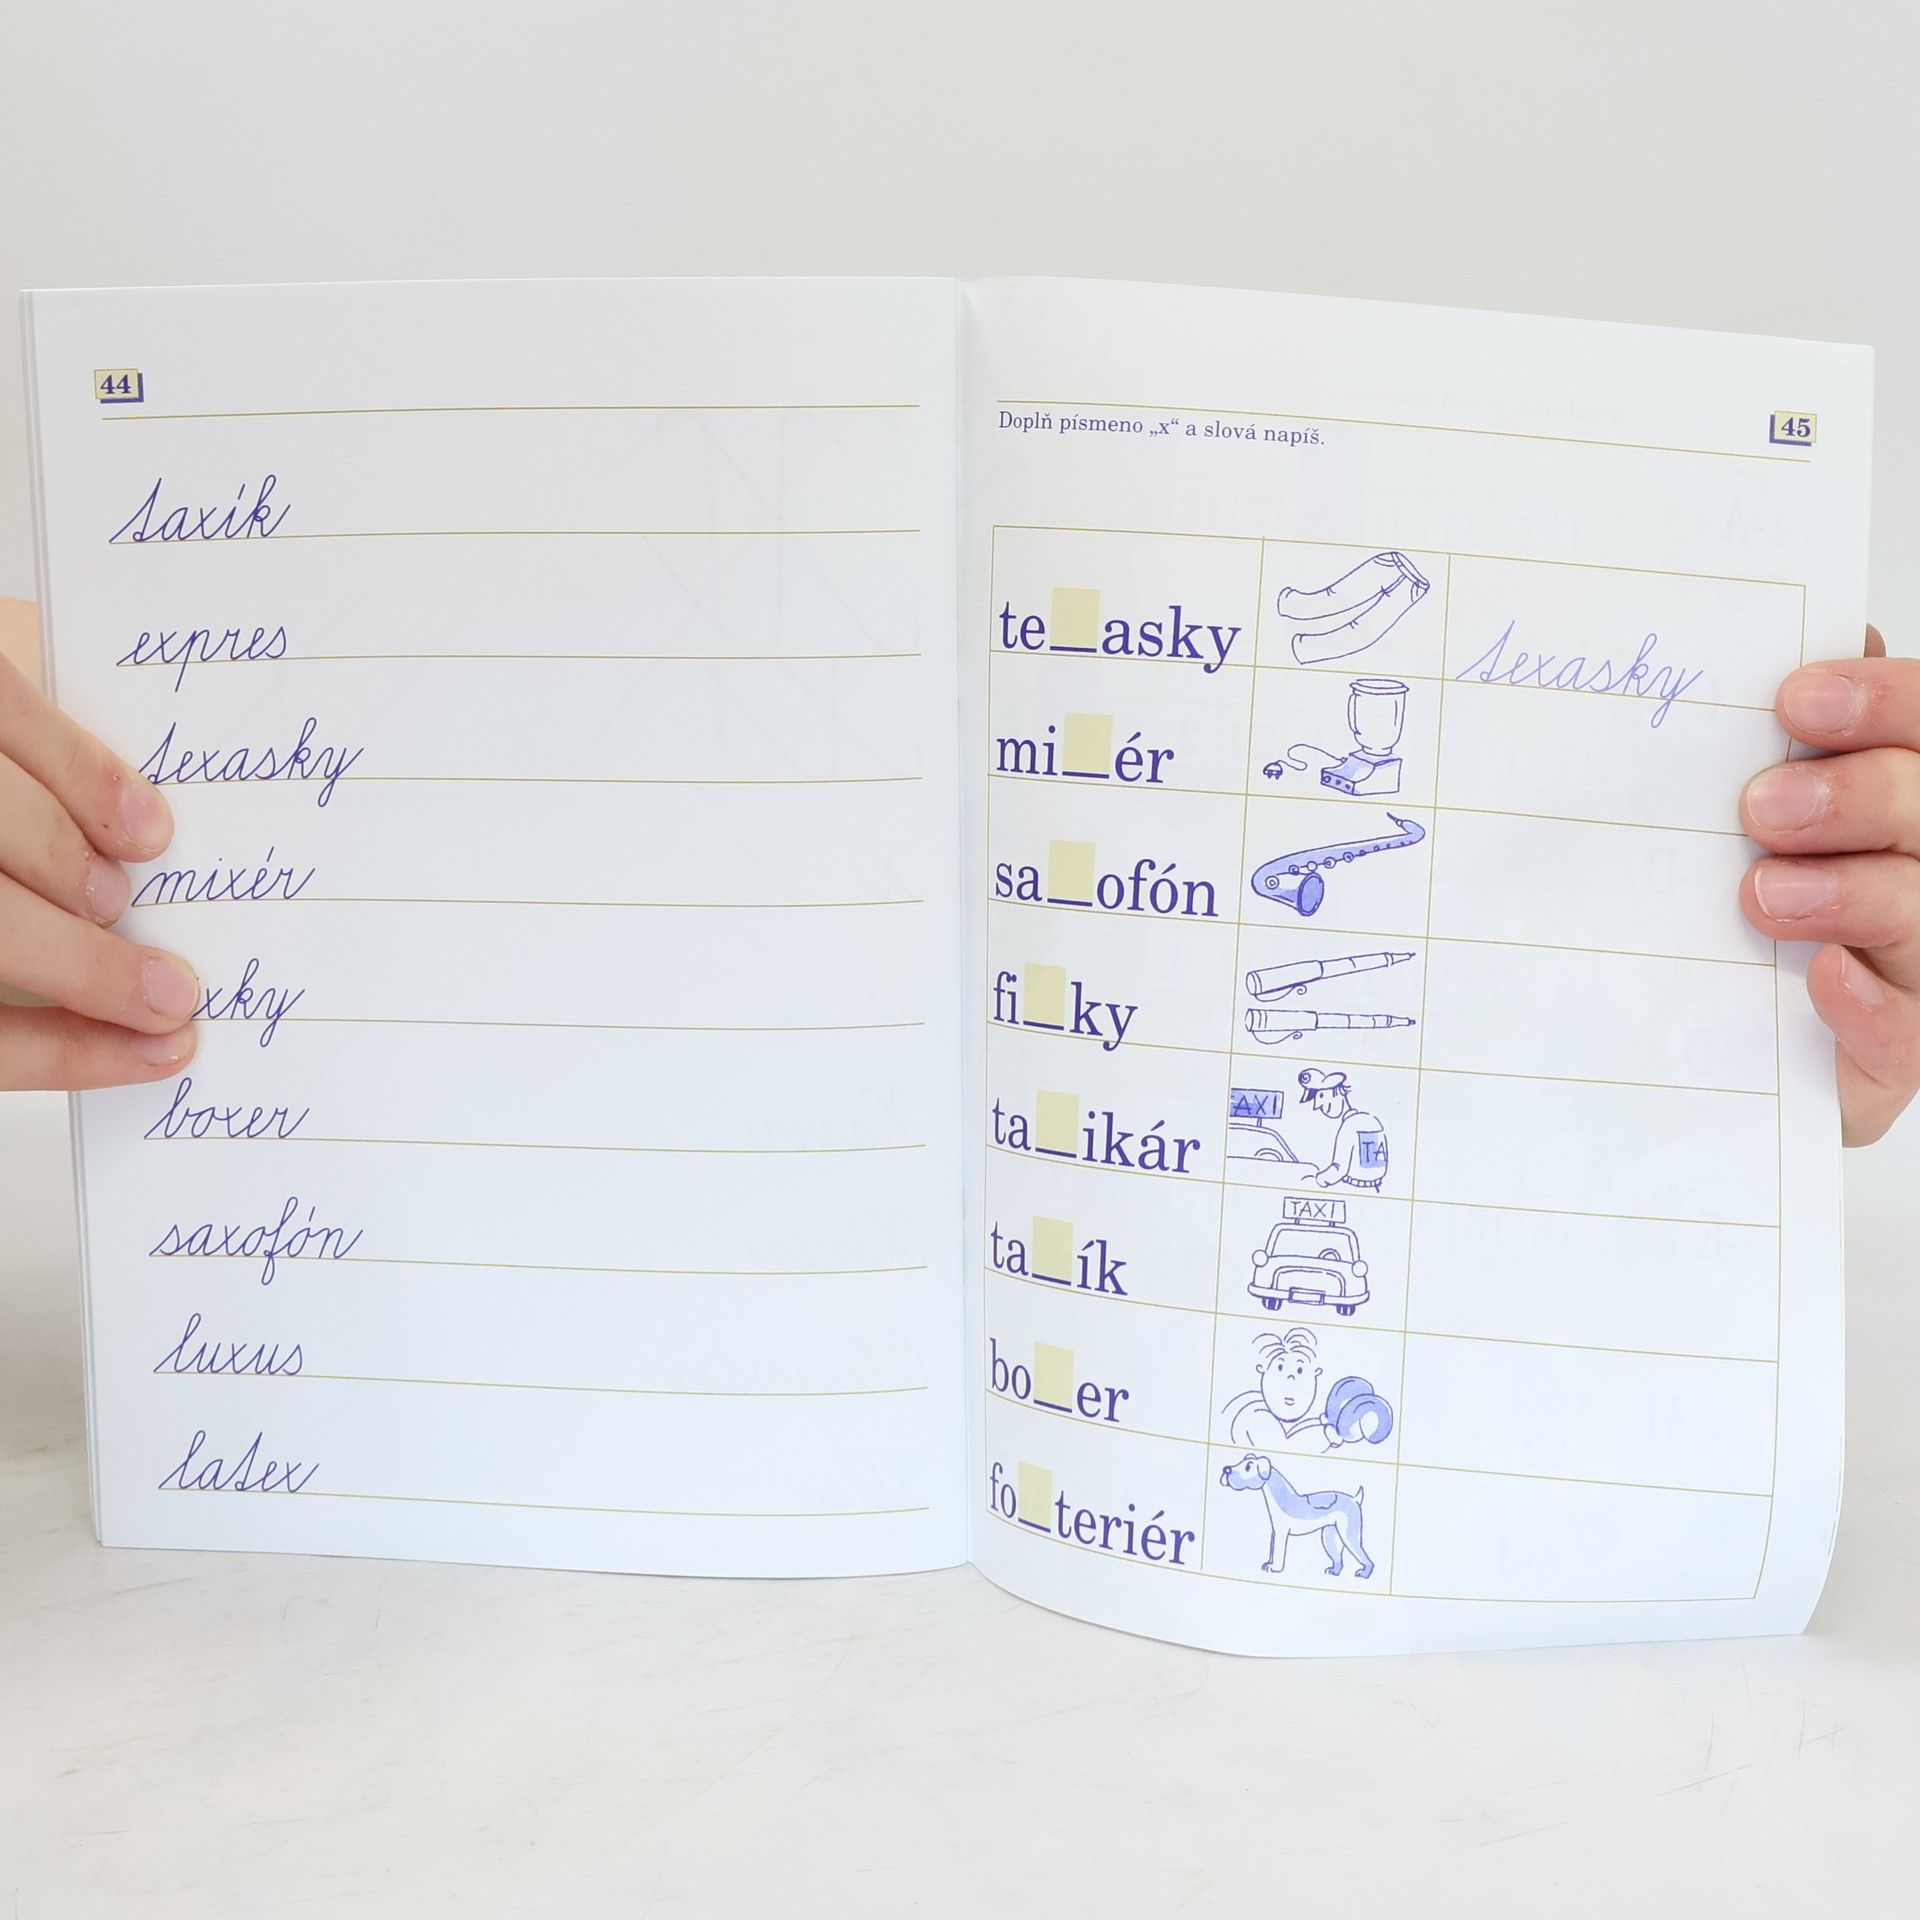 44
taxík
expres
texasky
mixér
xky
boxer
saxofón
luxus
latex
Doplň písmeno „x“ a slová napíš.
45
te_asky
texasky
mi_ér
sa_ofón
fi_ky
ta_ikár
AXI
TA
ta_ík
TAXI
bo_er
fo_teriér